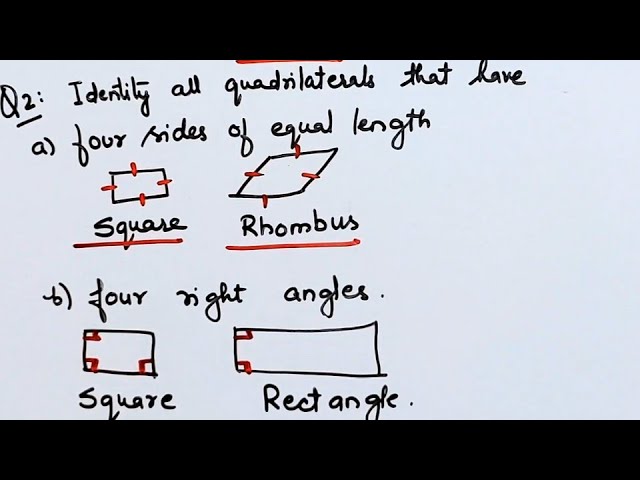 Q2: Identity all quadrilaterals that have
a) four sides of equal length
Square Rhombus
b) four right angles.
Square Rectangle.